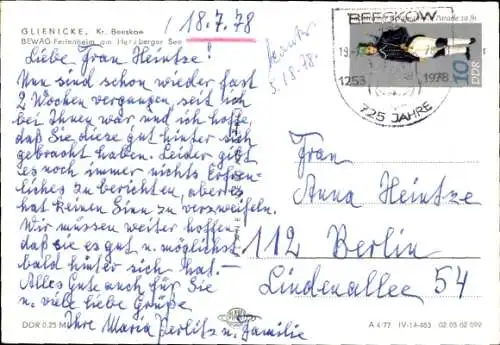 GLIENICKE, Kr. Beeskow
BEWAG-Ferienheim am Herzberger See
18.7.78
Liebe Frau Heintze!
Nun sind schon wieder fast
2 Wochen vergangen, seit ich
bei Ihnen war und ich hoffe,
daß Sie diese gut hinter sich
gebracht haben. Leider gibt
es noch immer nichts Erfreu-
liches zu berichten, aber es
hat keinen Sinn zu verzweifeln.
Wir müssen weiter hoffen,
daß sie es gut u. möglichst
bald hinter sich hat.-
Alles Gute auch für Sie
u. viele liebe Grüße
Ihre Maria Perlitz u. Familie
3.18.78.
BEESKOW
1253 1978
725 JAHRE
10
DDR
Frau
Anna Heintze
112 Berlin
Lindenallee 54
DDR 0,25 M
A 4/77 IV-14-483 02 05 02 099